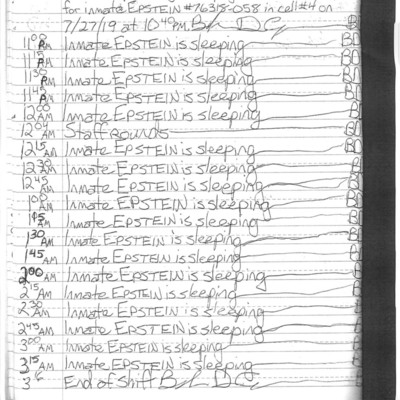 for inmate EPSTEIN #76318-058 in cell #4 on
7/27/19 at 10:40PM.
11:00 PM Inmate EPSTEIN is sleeping
11:15 PM Inmate EPSTEIN is sleeping
11:30 PM Inmate EPSTEIN is sleeping
11:45 PM Inmate EPSTEIN is sleeping
12:00 AM Inmate EPSTEIN is sleeping
12:04 AM Staff rounds
12:15 AM Inmate EPSTEIN is sleeping
12:30 AM Inmate EPSTEIN is sleeping
12:45 AM Inmate EPSTEIN is sleeping
1:00 AM Inmate EPSTEIN is sleeping
1:15 AM Inmate EPSTEIN is sleeping
1:30 AM Inmate EPSTEIN is sleeping
1:45 AM Inmate EPSTEIN is sleeping
2:00 AM Inmate EPSTEIN is sleeping
2:15 AM Inmate EPSTEIN is sleeping
2:30 AM Inmate EPSTEIN is sleeping
2:45 AM Inmate EPSTEIN is sleeping
3:00 AM Inmate EPSTEIN is sleeping
3:15 AM Inmate EPSTEIN is sleeping
End of Shift